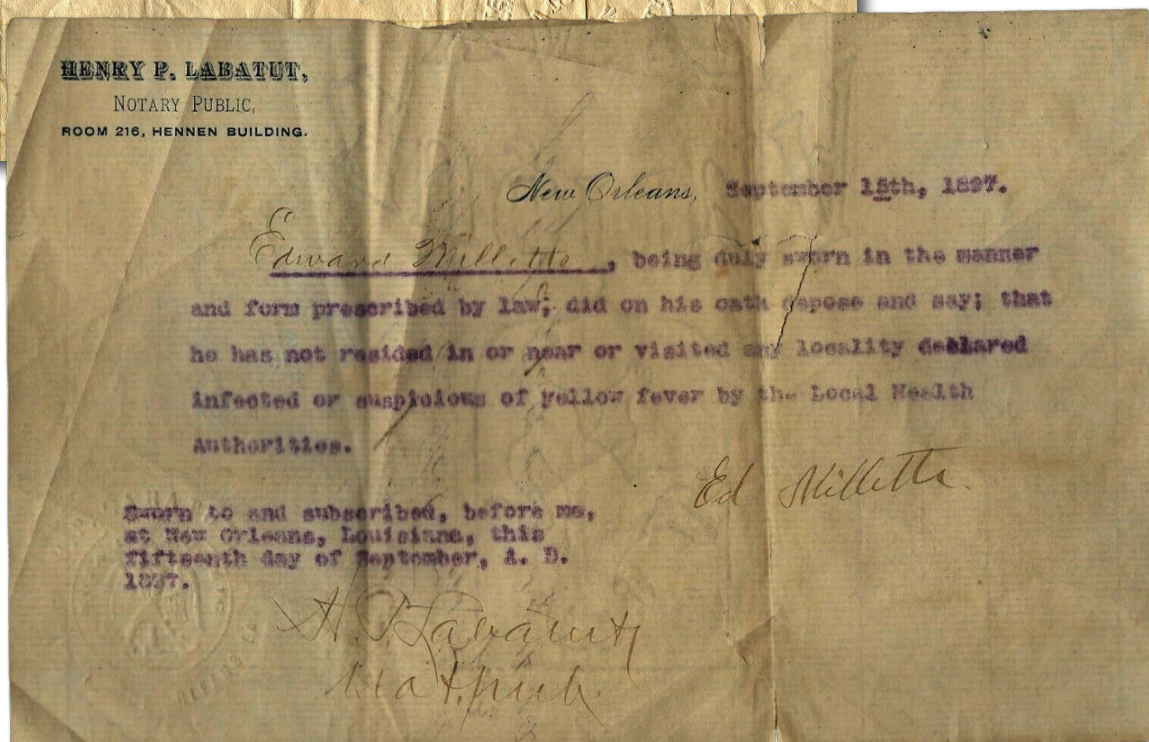 HENRY P. LABATUT,
NOTARY PUBLIC,
ROOM 216, HENNEN BUILDING.
New Orleans, September 15th, 1897.
Edward Millette, being duly sworn in the manner
and form prescribed by law; did on his oath depose and say; that
he has not resided in or near or visited any locality declared
infected or suspicious of yellow fever by the Local Health
Authorities.
Ed Millette
Sworn to and subscribed, before me,
at New Orleans, Louisiana, this
fifteenth day of September, A. D.
1897.
H. P. Labatut
Not. Pub.